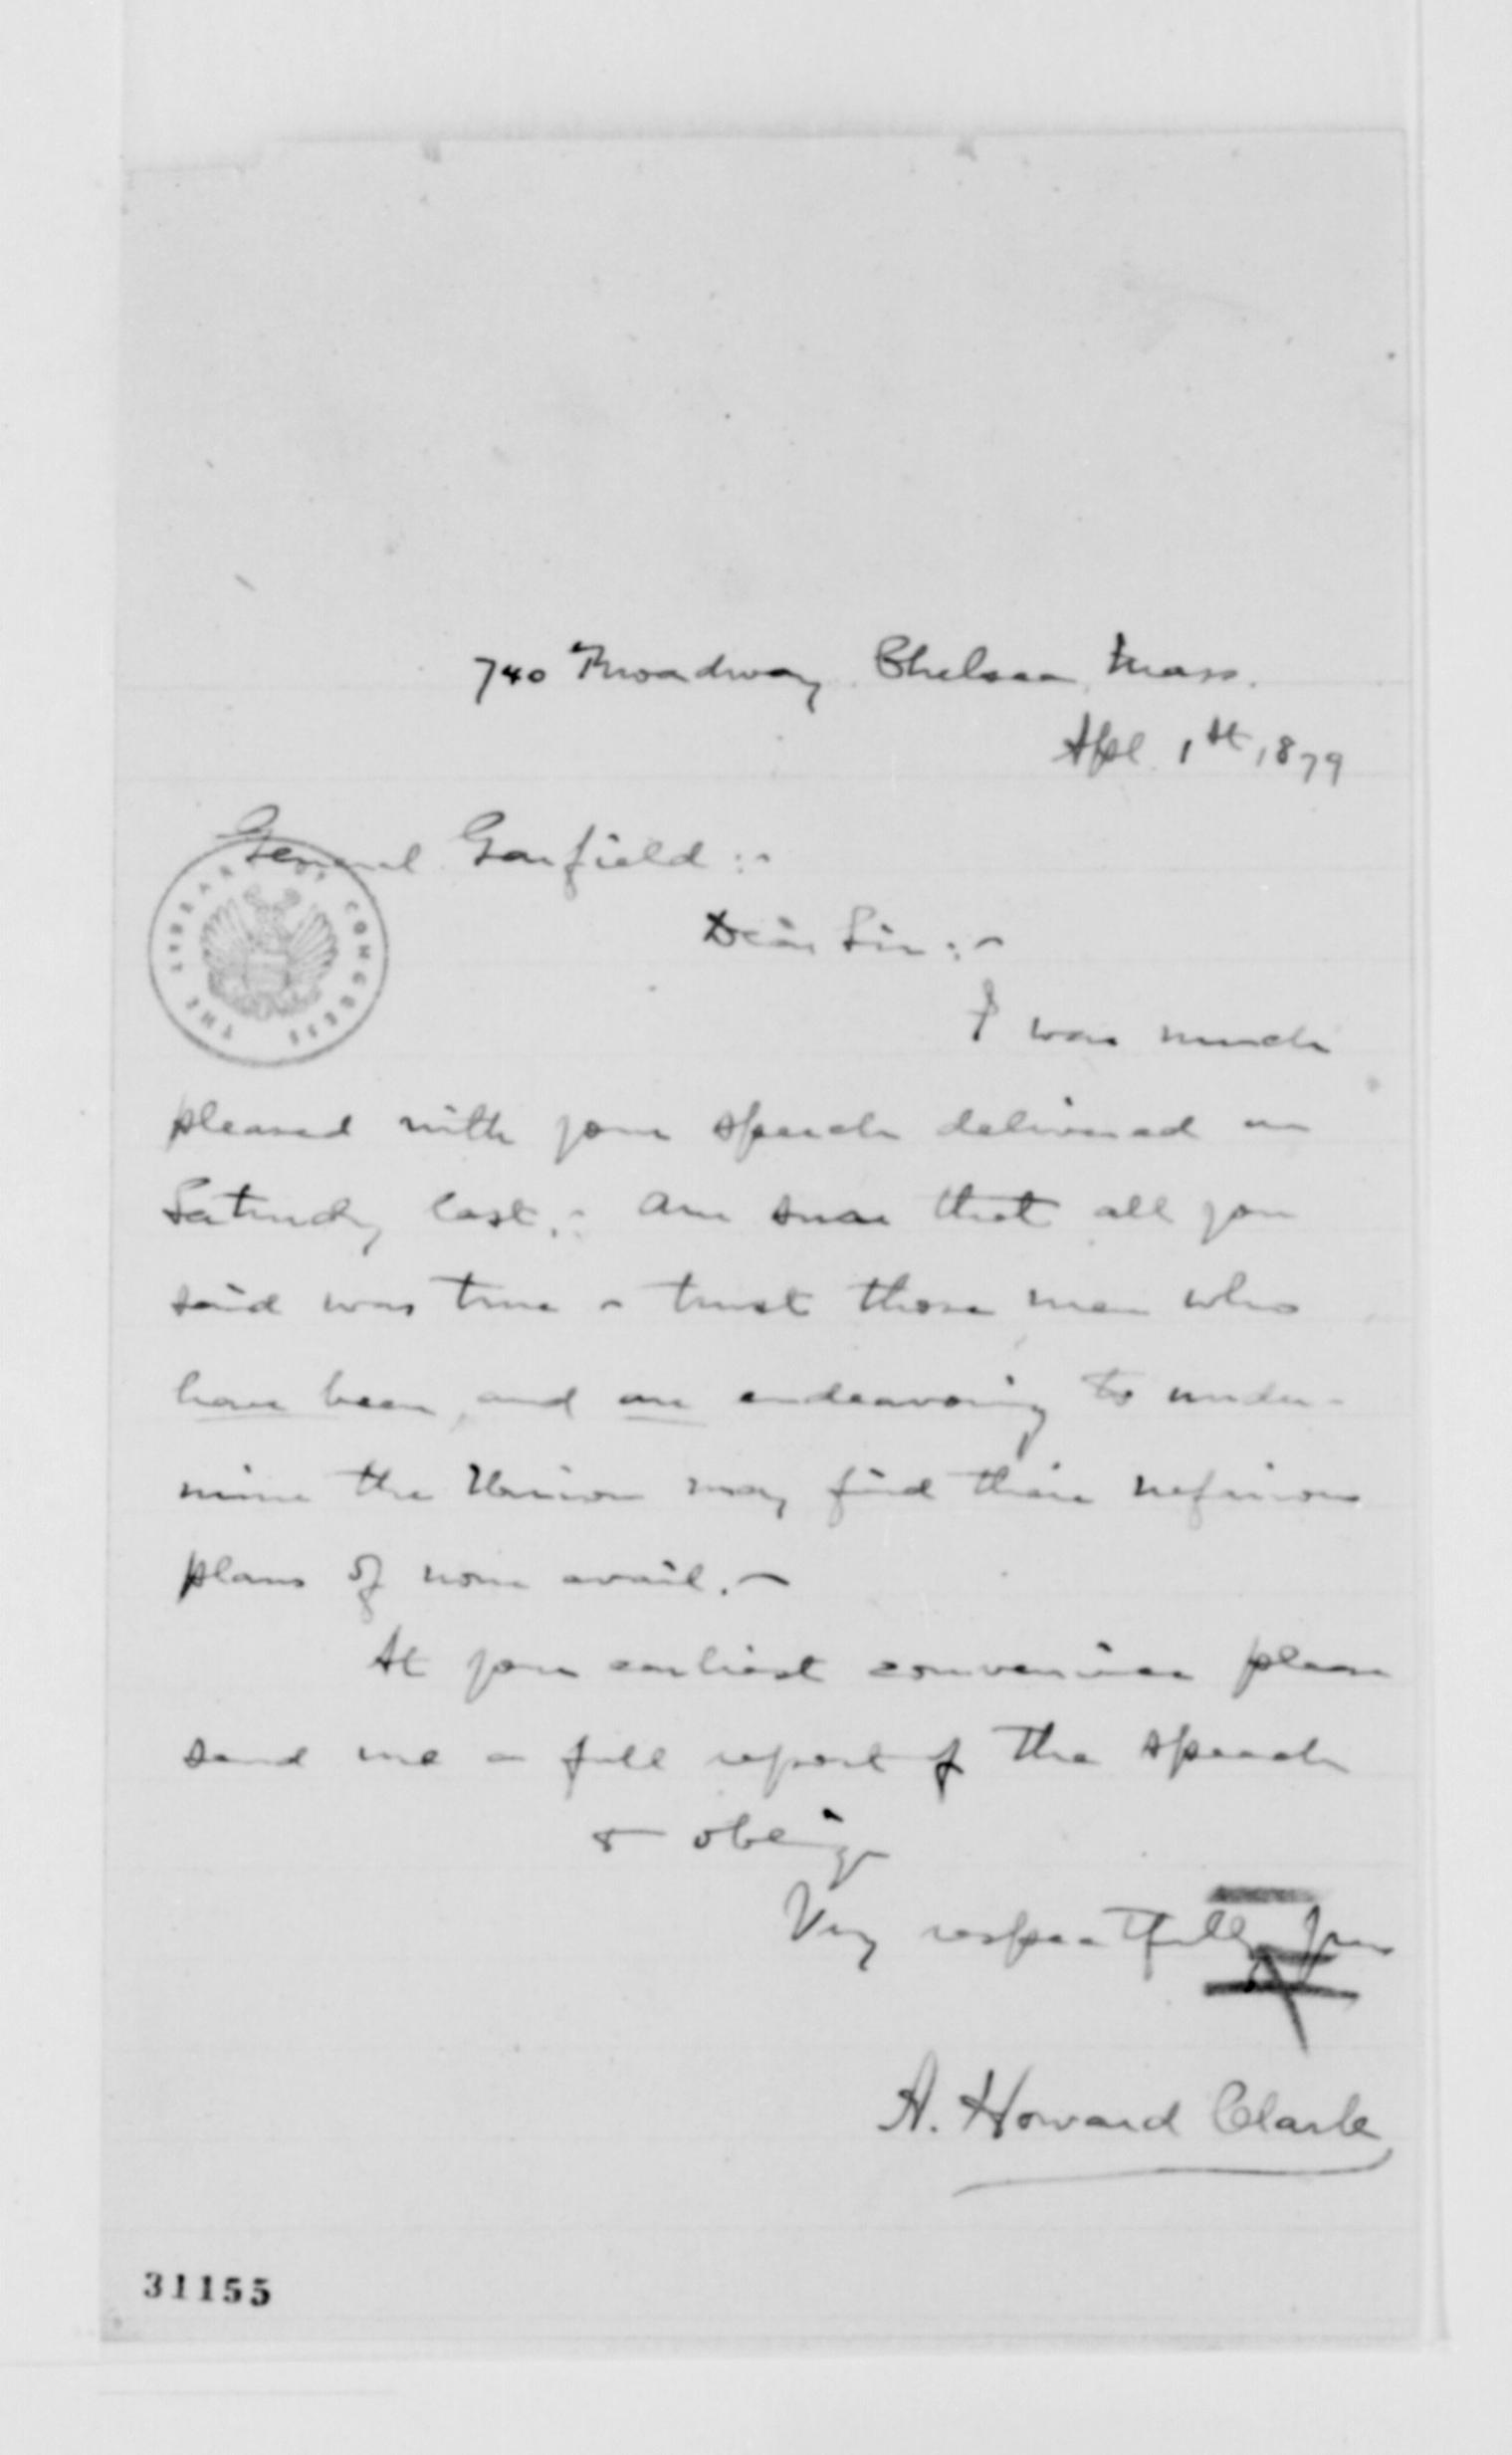 740 Broadway Chelsea, Mass.
Apl. 1st, 1879
General Garfield :-
Dear Sir :-
I was much
pleased with your speech delivered on
Saturday last. :- Am sure that all you
said was true & trust those men who
have been, and are endeavoring to under-
mine the Union may find their nefarious
plans of none avail. -
At your earliest convenience please
send me a full report of the speech
& oblige
Very respectfully yours
A. Howard Clark
THE LIBRARY OF CONGRESS
31155